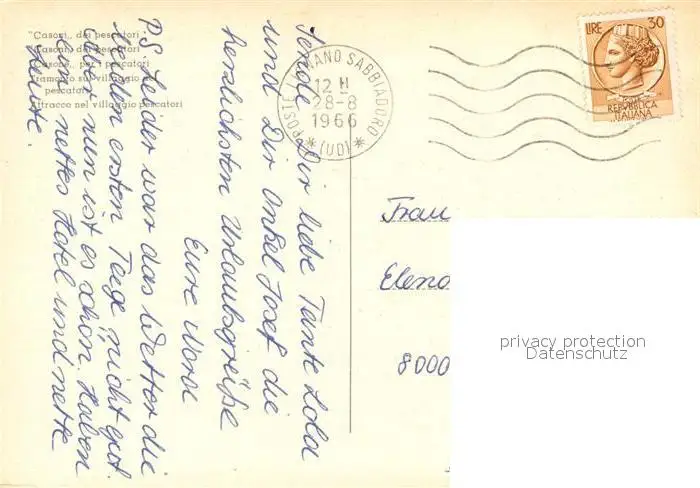 "Casoni„ dei pescatori
"Casoni„ dei pescatori
"Casone„ per i pescatori
Tramonto sul villaggio dei
pescatori
Attracco nel villaggio pescatori
POSTE LIGNANO SABBIADORO
12 H
28-8
1966
* (UD) *
LIRE 30
REPVBBLICA
ITALIANA
Sende Dir liebe Tante Lola
und Dir Onkel Josef die
herzlichsten Urlaubsgrüße
Eure
P.S. Leider war das Wetter die
beiden ersten Tage nicht gut.
Aber nun ist es schön. Haben
ein nettes Hotel und nette
Leute.
Frau
8000
privacy protection
Datenschutz